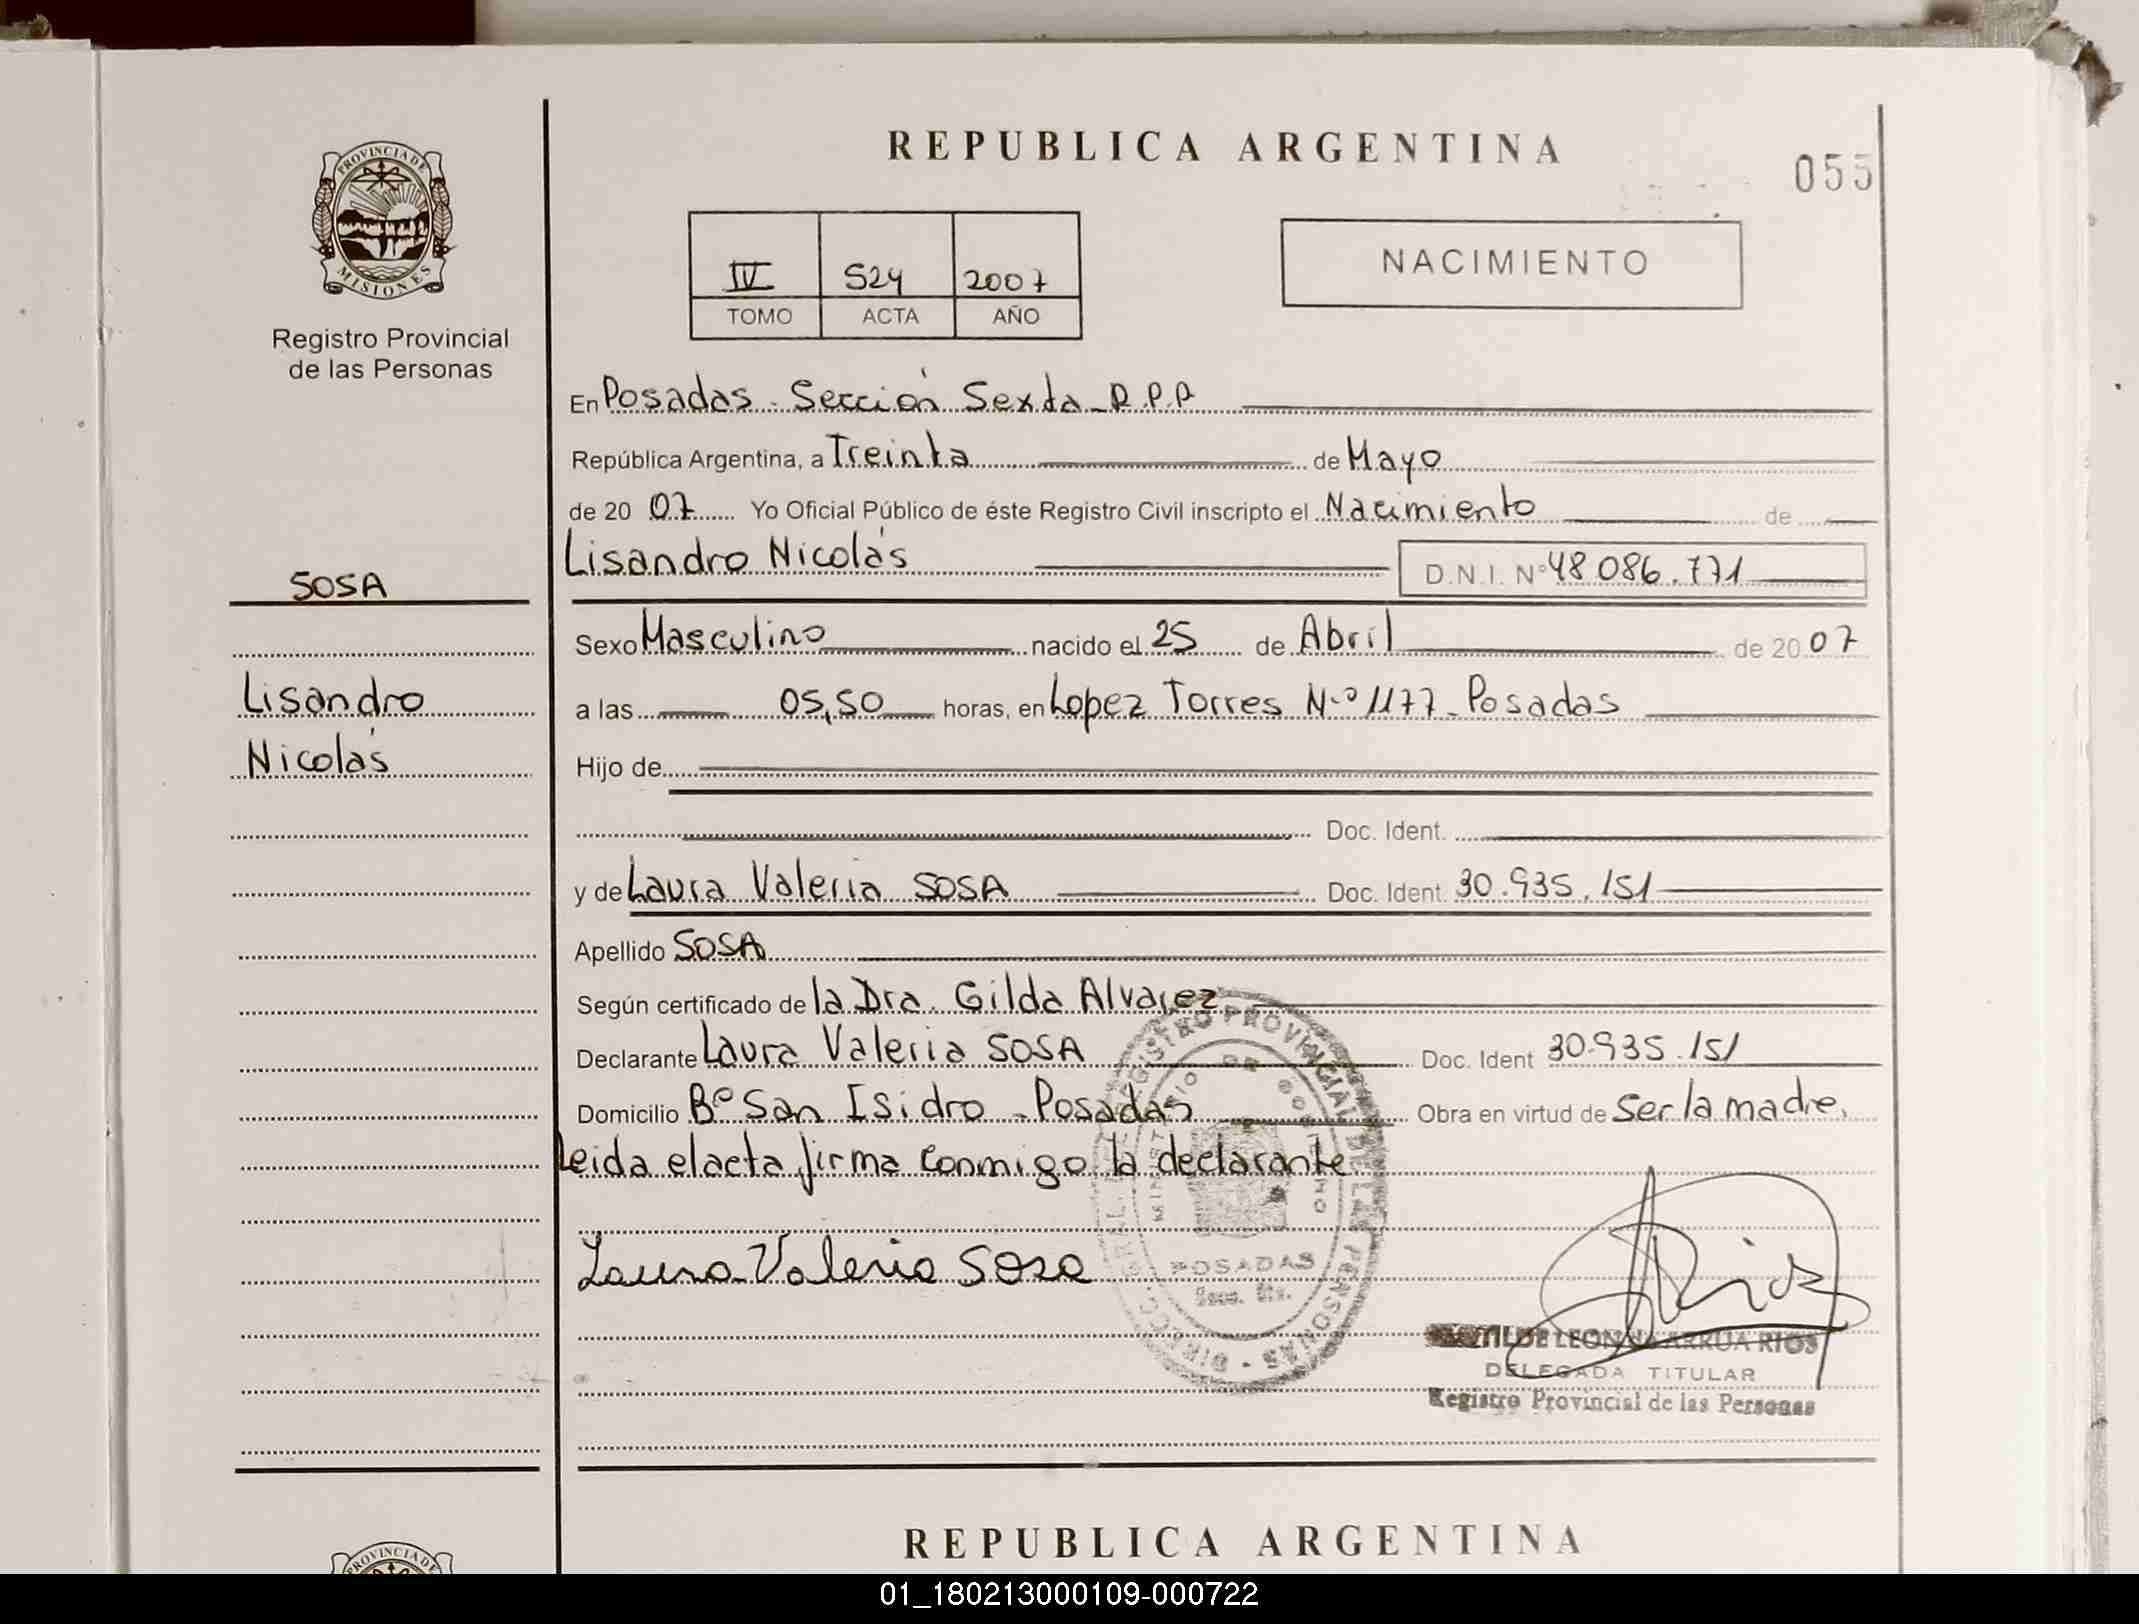 REPUBLICA ARGENTINA
055
PROVINCIA DE
MISIONES
Registro Provincial
de las Personas
IV 524 2007
TOMO ACTA AÑO
NACIMIENTO
En Posadas - Sección Sexta - R.P.P
República Argentina, a Treinta de Mayo
de 20 07 Yo Oficial Público de éste Registro Civil inscripto el Nacimiento de
Lisandro Nicolás D.N.I. Nº 48 086.771
SOSA
Sexo Masculino nacido el 25 de Abril de 20 07
Lisandro
a las 05,50 horas, en Lopez Torres N.º 1177 - Posadas
Nicolás
Hijo de
Doc. Ident.
y de Laura Valeria SOSA Doc. Ident. 30.935.151
Apellido SOSA
Según certificado de la Dra. Gilda Alvarez
Declarante Laura Valeria SOSA Doc. Ident 30.935.151
Domicilio Bº San Isidro - Posadas Obra en virtud de Ser la madre,
Leida el acta firma conmigo la declarante
Laura Valeria Sosa
REGISTRO PROVINCIAL DE LAS PERSONAS
MINISTERIO DE GOBIERNO
POSADAS
Rios
LEON ARRUA RIOS
DELEGADA TITULAR
Registro Provincial de las Personas
REPUBLICA ARGENTINA
PROVINCIA DE
01_180213000109-000722